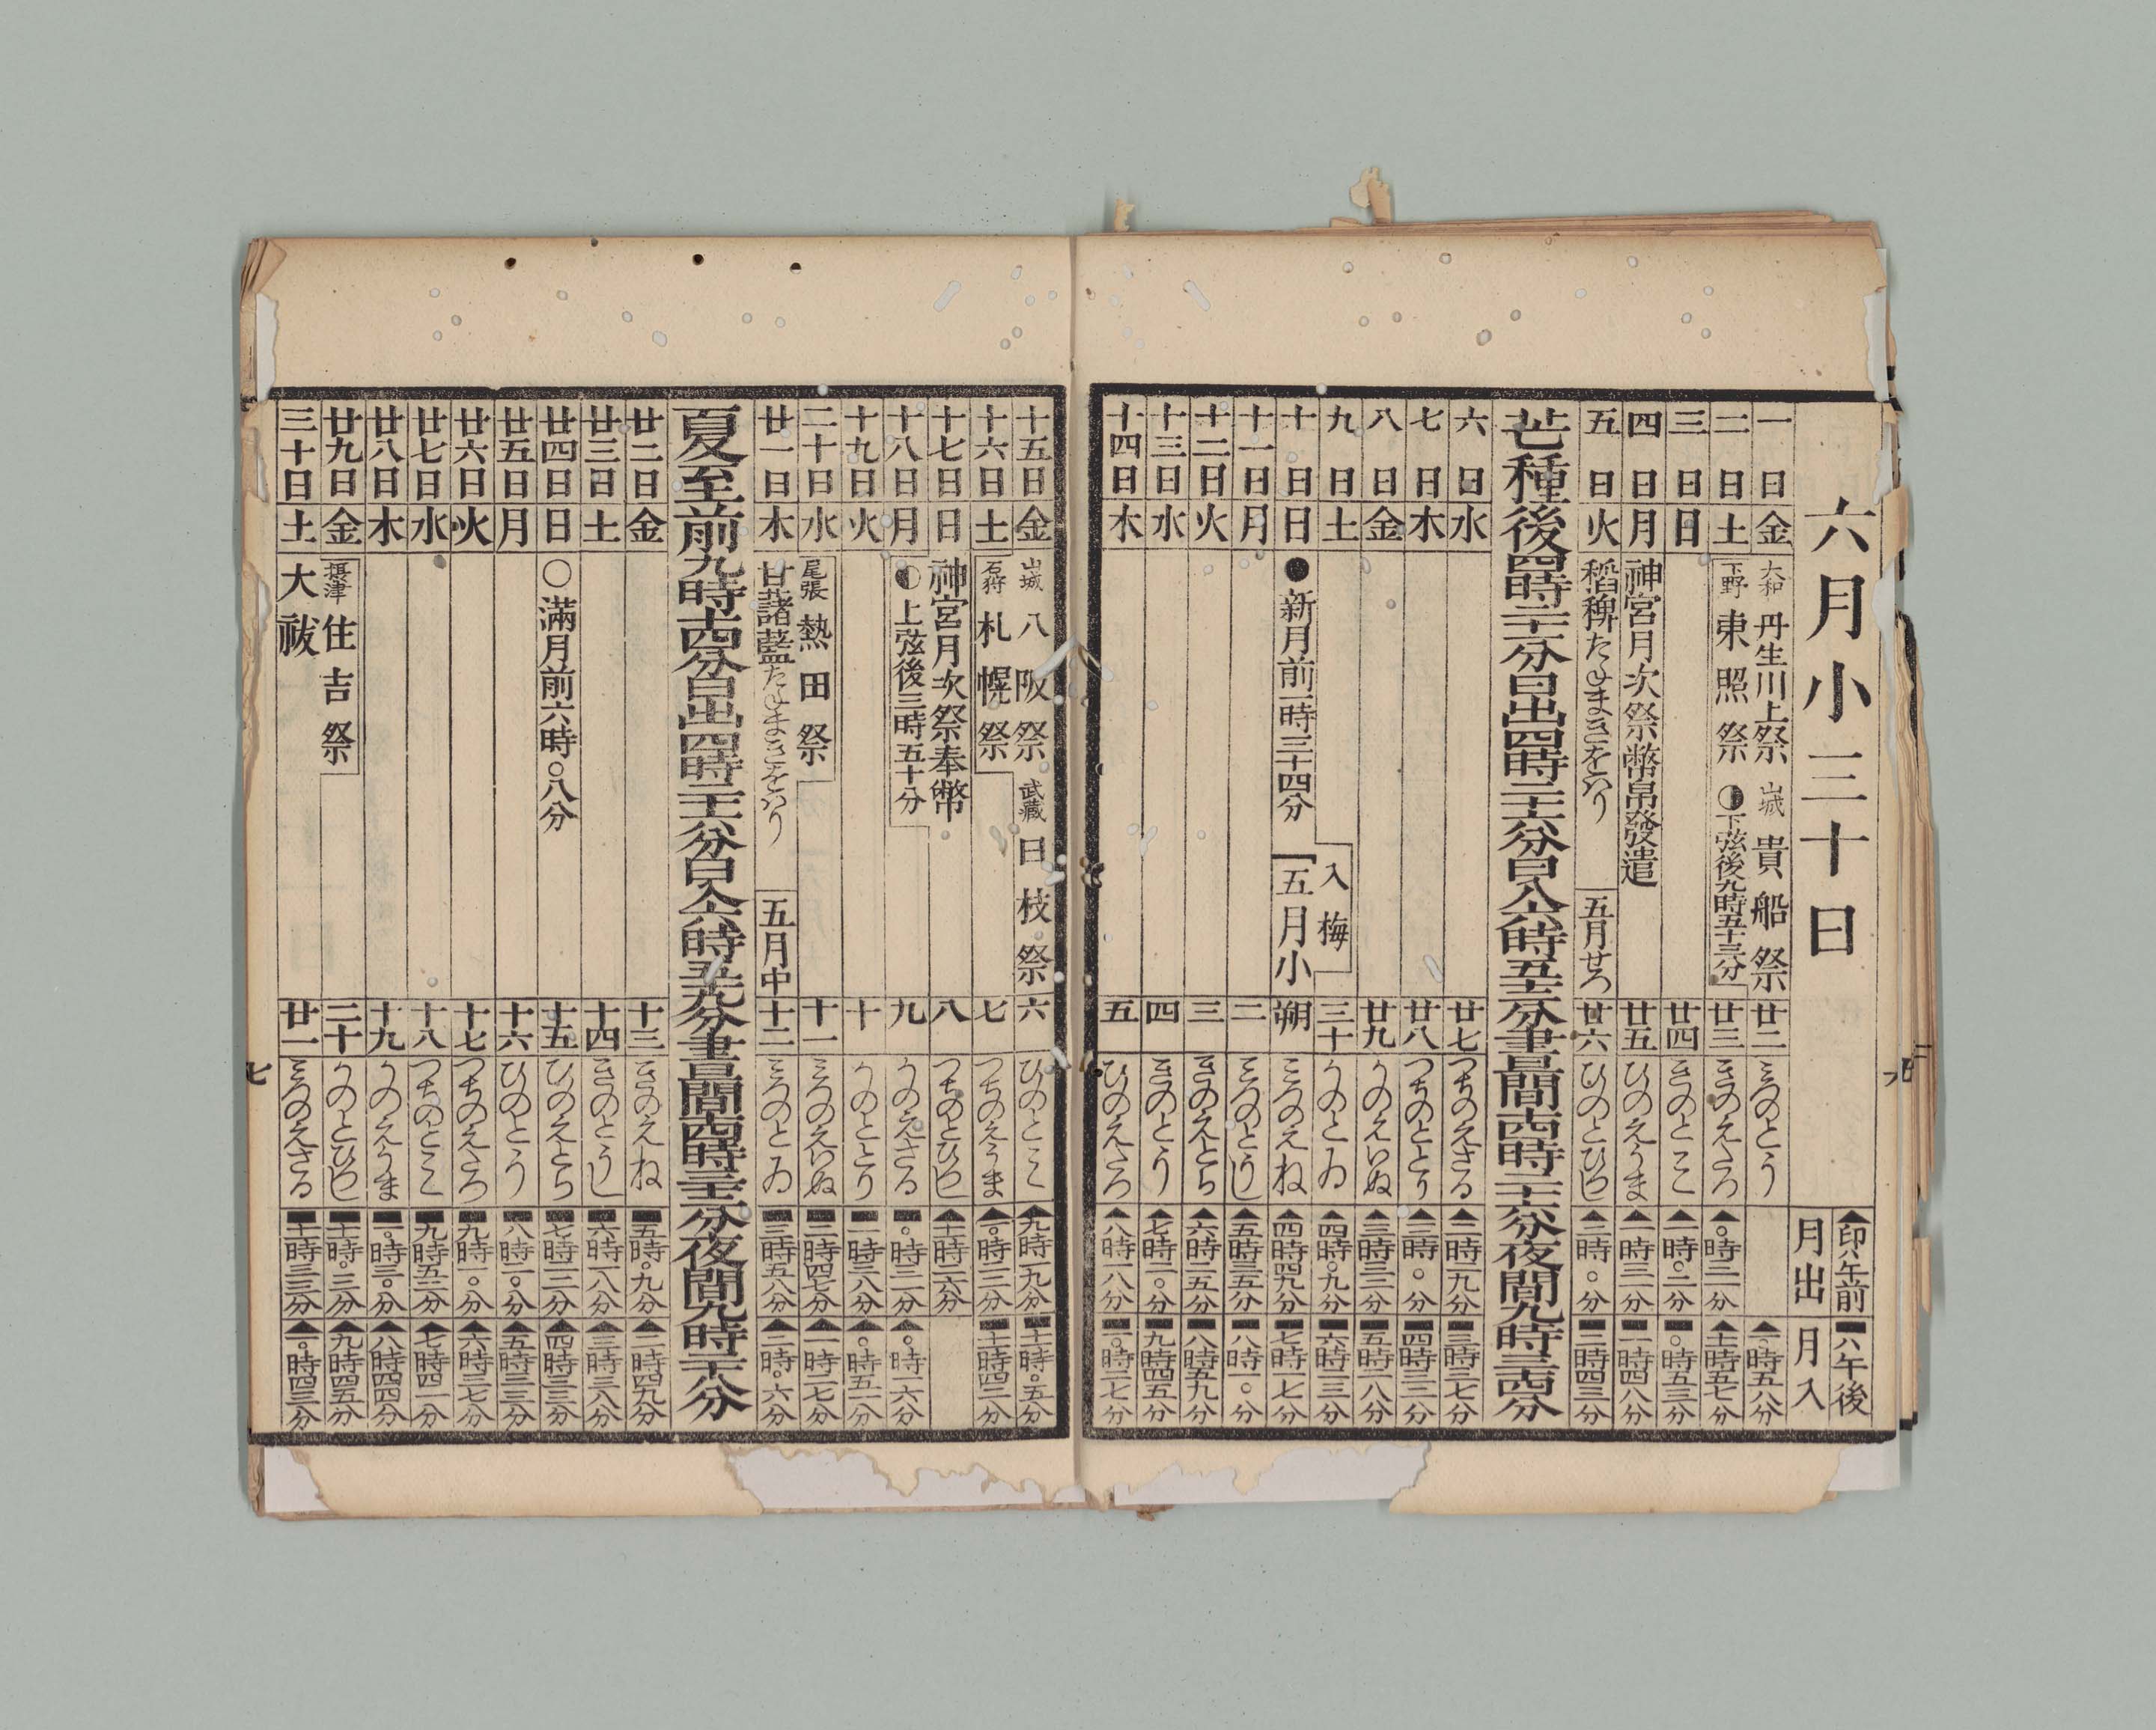 六月小三十日 ▲印ハ午前 ▬ハ午後 月出 月入
一日 金 大和 丹生川上祭 山城 貴船祭 廿二 みつのとう ▲一〇時五八分
二日 土 下野 東照祭 ◑下弦後九時五十三分 廿三 きのえたつ ▲〇時二一分 ▲十一時五七分
三日 日 廿四 きのとみ ▲一時〇二分 ▬〇時五三分
四日 月 神宮月次祭幣帛發遣 廿五 ひのえうま ▲一時三一分 ▬一時四八分
五日 火 稻稗たねまきをハり 五月せつ 廿六 ひのとひつし ▲二時〇〇分 ▬二時四三分
芒種後四時二十一分日出四時二十六分日入六時五十二分晝間十四時二十六分夜間九時三十四分
六日 水 廿七 つちのえさる ▲二時二九分 ▬三時三七分
七日 木 廿八 つちのととり ▲三時〇〇分 ▬四時三二分
八日 金 廿九 かのえいぬ ▲三時三三分 ▬五時二八分
九日 土 入梅 三十 かのとゐ ▲四時〇九分 ▬六時二三分
十日 日 ●新月前一時三十四分 五月小 朔 みつのえね ▲四時四九分 ▬七時一七分
十一日 月 二 みつのとうし ▲五時三五分 ▬八時一〇分
十二日 火 三 きのえとら ▲六時二五分 ▬八時五九分
十三日 水 四 きのとう ▲七時二〇分 ▬九時四五分
十四日 木 五 ひのえたつ ▲八時一八分 ▬一〇時二七分
十五日 金 山城 八阪祭 武藏 日枝祭 六 ひのとみ ▲九時一九分 ▬十一時〇五分
十六日 土 石狩 札幌祭 七 つちのえうま ▲一〇時二二分 ▬十一時四二分
十七日 日 神宮月次祭奉幣 八 つちのとひつし ▲十一時二六分
十八日 月 ◐上弦後三時五十分 九 かのえさる ▬〇時三二分 ▲〇時一六分
十九日 火 十 かのととり ▬一時三八分 ▲〇時五一分
二十日 水 尾張 熱田祭 十一 みつのえいぬ ▬二時四七分 ▲一時二七分
廿一日 木 甘藷藍たねまきをハり 五月中 十二 みつのとゐ ▬三時五八分 ▲二時〇六分
夏至前九時十四分日出四時二十六分日入六時五十九分晝間十四時三十二分夜間九時二十八分
廿二日 金 十三 きのえね ▬五時〇九分 ▲二時四九分
廿三日 土 十四 きのとうし ▬六時一八分 ▲三時三八分
廿四日 日 ○滿月前六時〇八分 十五 ひのえとら ▬七時二二分 ▲四時三三分
廿五日 月 十六 ひのとう ▬八時二〇分 ▲五時三三分
廿六日 火 十七 つちのえたつ ▬九時一〇分 ▲六時三七分
廿七日 水 十八 つちのとみ ▬九時五二分 ▲七時四一分
廿八日 木 十九 かのえうま ▬一〇時三〇分 ▲八時四四分
廿九日 金 摂津 住吉祭 二十 かのとひつし ▬十一時〇三分 ▲九時四五分
三十日 土 大祓 廿一 みつのえさる ▬十一時三三分 ▲一〇時四三分
七